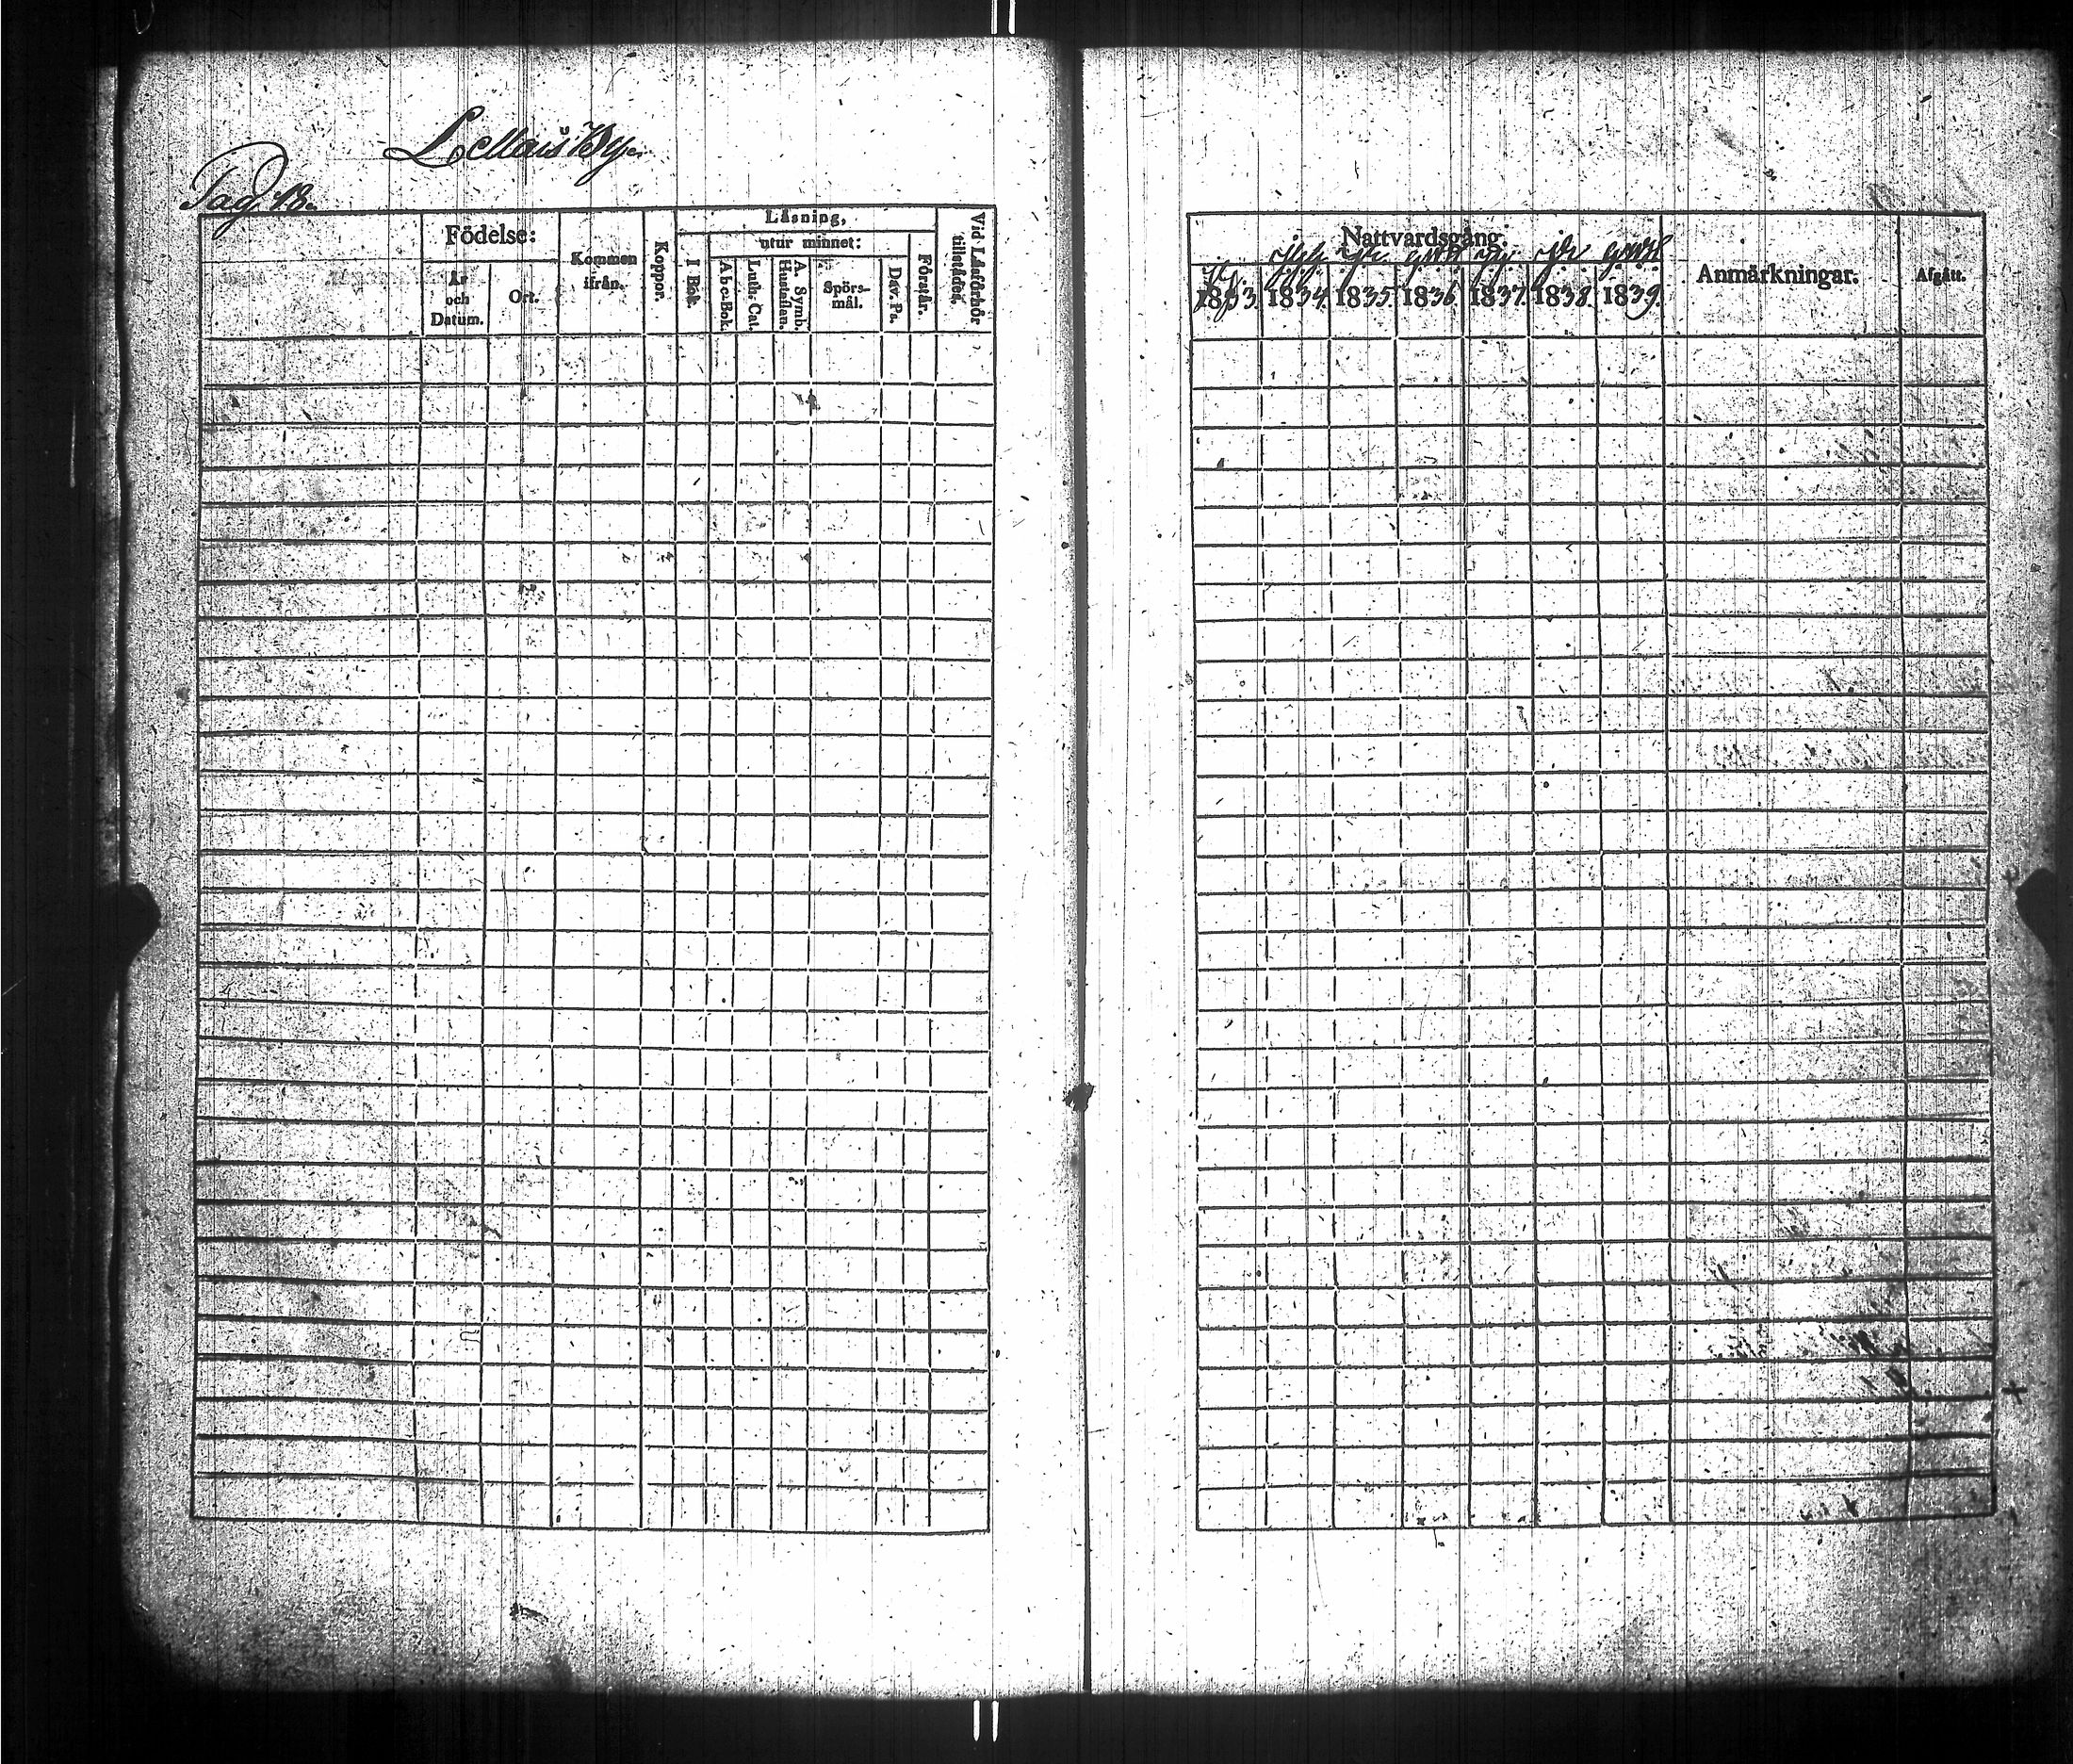 Lellais By.
Pag. 18.
Födelse:
År och Datum.
Ort.
Kommen ifrån.
Koppor.
Läsning,
I Bok.
utur minnet:
Abc-Bok.
Luth. Cat.
A. Symb. Hustaflan.
Spörs-
mål.
Dav. Ps.
Förstår.
Vid Läsförhör tillstädes.
Nattvardsgång.
1833. 1834. 1835. 1836. 1837. 1838. 1839.
Anmärkningar.
Afgått.